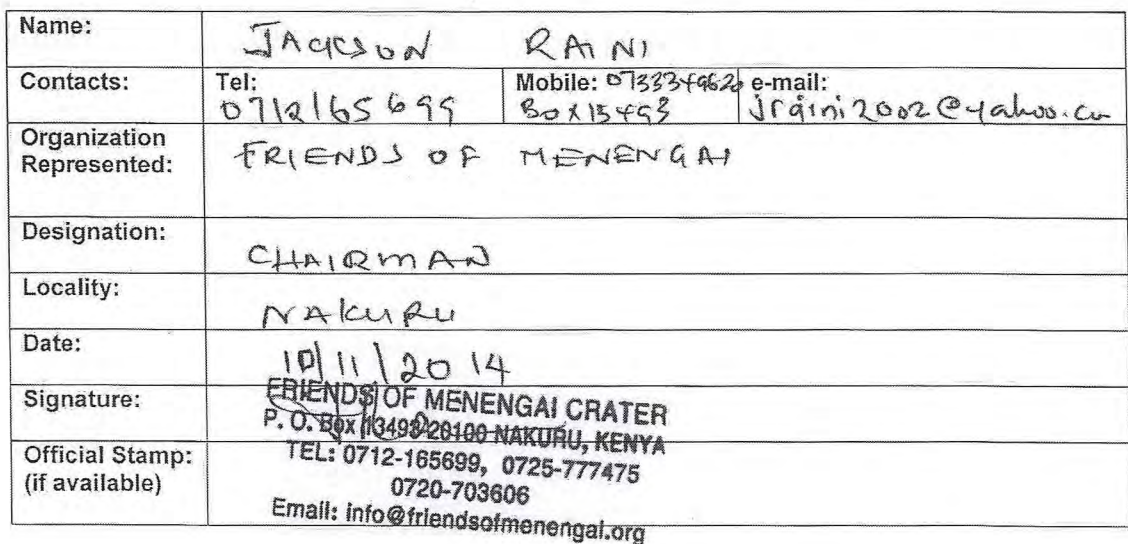 Name: JACKSON RAINI
Contacts: Tel: 0712165699 Mobile: 0733349620 Box 13493 e-mail: jraini2002@yahoo.co
Organization Represented: FRIENDS OF MENENGAI
Designation: CHAIRMAN
Locality: NAKURU
Date: 10/11/2014
Signature:
Official Stamp: (if available)
FRIENDS OF MENENGAI CRATER
P. O. Box 13493-20100 NAKURU, KENYA
TEL: 0712-165699, 0725-777475
0720-703606
Email: info@friendsofmenengai.org